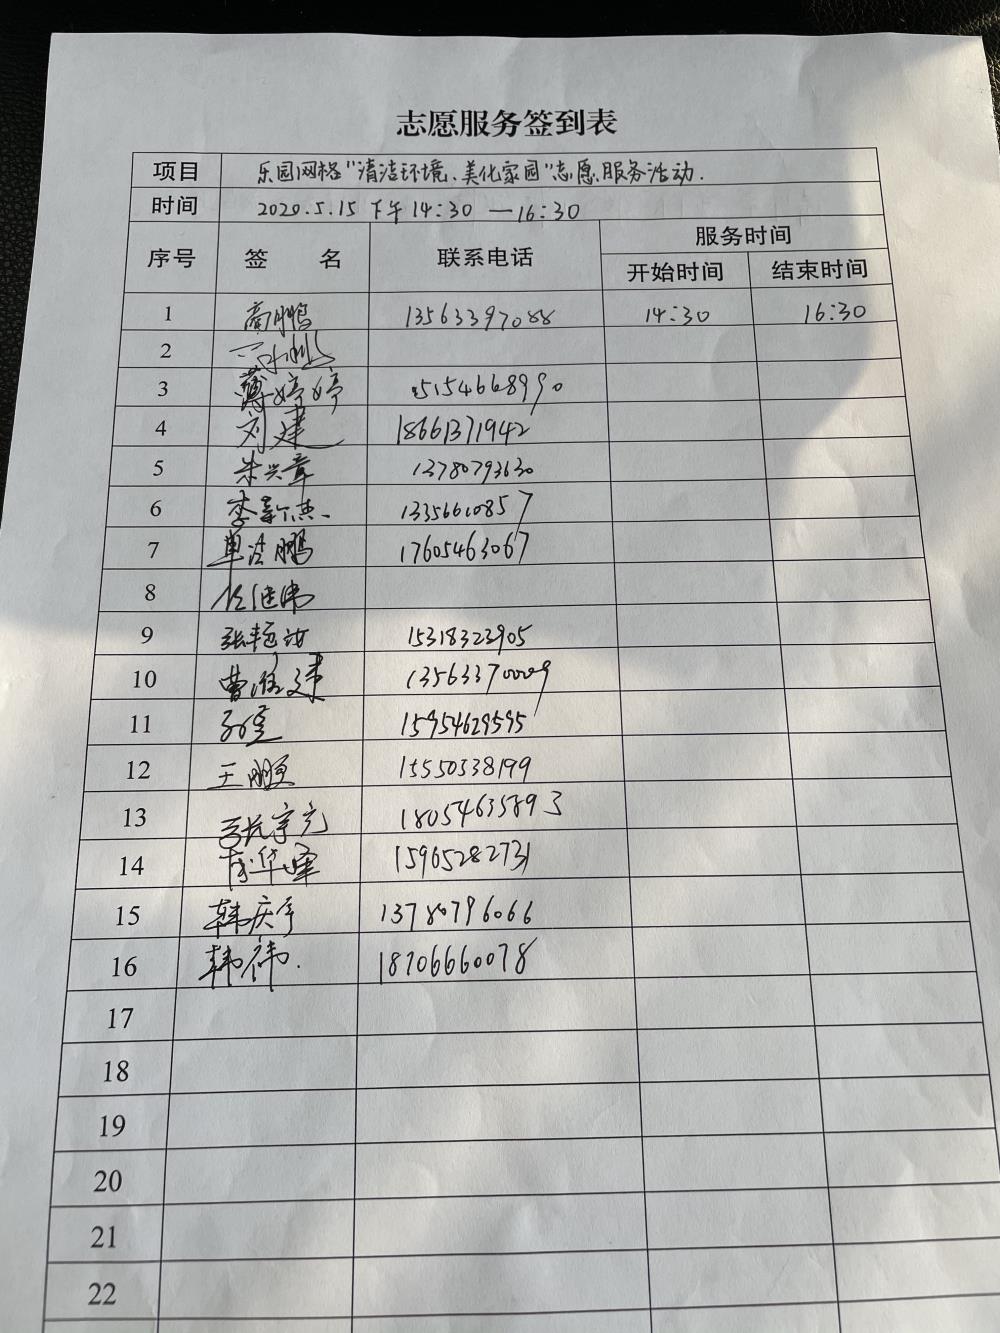 志愿服务签到表
项目 乐园网格"清洁环境、美化家园"志愿服务活动.
时间 2020.5.15 下午 14:30 —16:30
序号 签 名 联系电话 服务时间
开始时间 结束时间
1 高鹏 13563397088 14:30 16:30
2
3 薄婷婷 15154668990
4 刘建 18661371942
5 朱兴章 13780793630
6 13356610857
7 单洪鹏 17605463067
8 任继伟
9 张艳 15318323905
10 曹 建 13563370009
11 15954629595
12 王鹏 15550338199
13 18054635893
14 华军 15965282731
15 韩庆 13780796066
16 韩祎. 18706660078
17
18
19
20
21
22